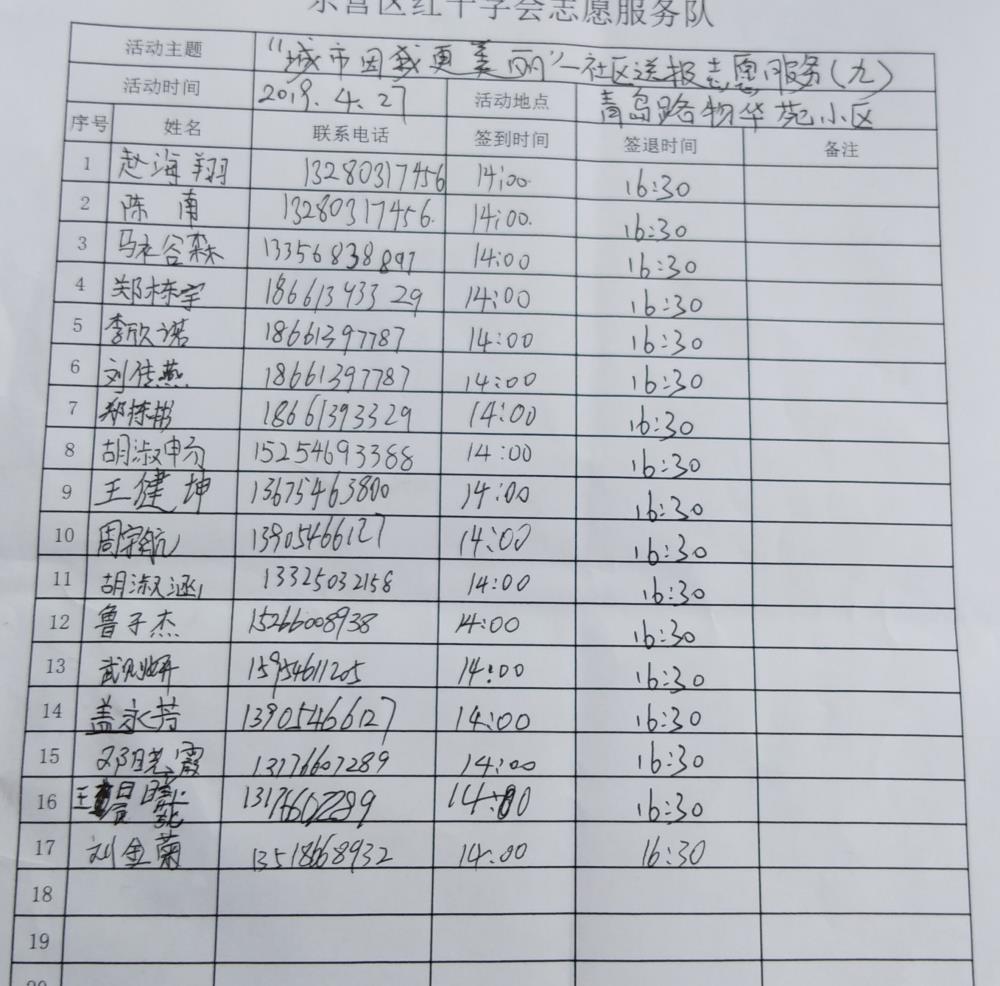 东营区红十字会志愿服务队
活动主题 “城市因我更美丽”—社区送报志愿服务(九)
活动时间 2019.4.27 活动地点 青岛路物华苑小区
序号 姓名 联系电话 签到时间 签退时间 备注
1 赵海翔 13280317456 14:00. 16:30
2 陈南 13280317456. 14:00. 16:30
3 马谷森 13356838897 14:00 16:30
4 郑栋宇 18661393329 14:00 16:30
5 李欣诺 18661397787 14:00 16:30
6 刘传燕 18661397787 14:00 16:30
7 郑栋彬 18661393329 14:00 16:30
8 胡淑畅 15254693388 14:00 16:30
9 王健坤 13675463800 14:00 16:30
10 周宇航 13905466127 14:00 16:30
11 胡淑涵 13325032158 14:00 16:30
12 鲁子杰 15266008938 14:00 16:30
13 武 15954611205 14:00 16:30
14 盖永芳 13905466127 14:00 16:30
15 邓晓霞 13176607289 14:00 16:30
16 王 13176607289 14:00 16:30
17 刘金菊 13518668932 14:00 16:30
18
19
20